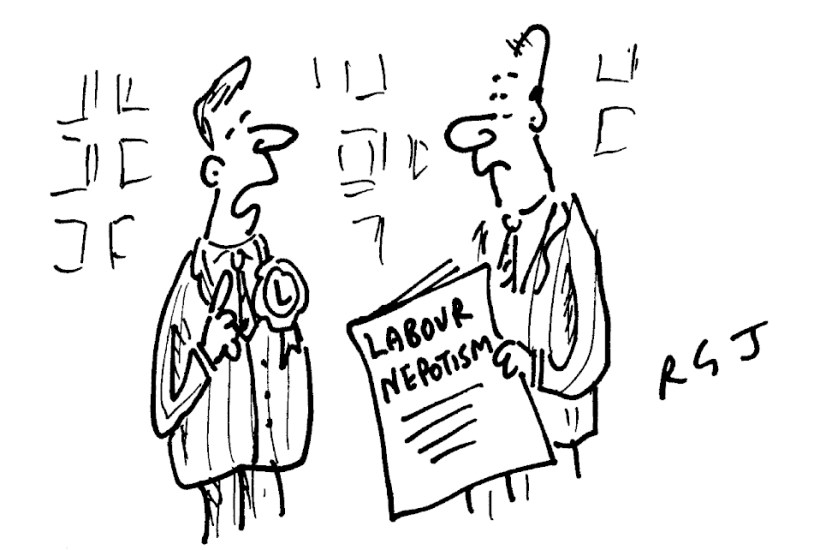 L
LABOUR
NEPOTISM
RGJ